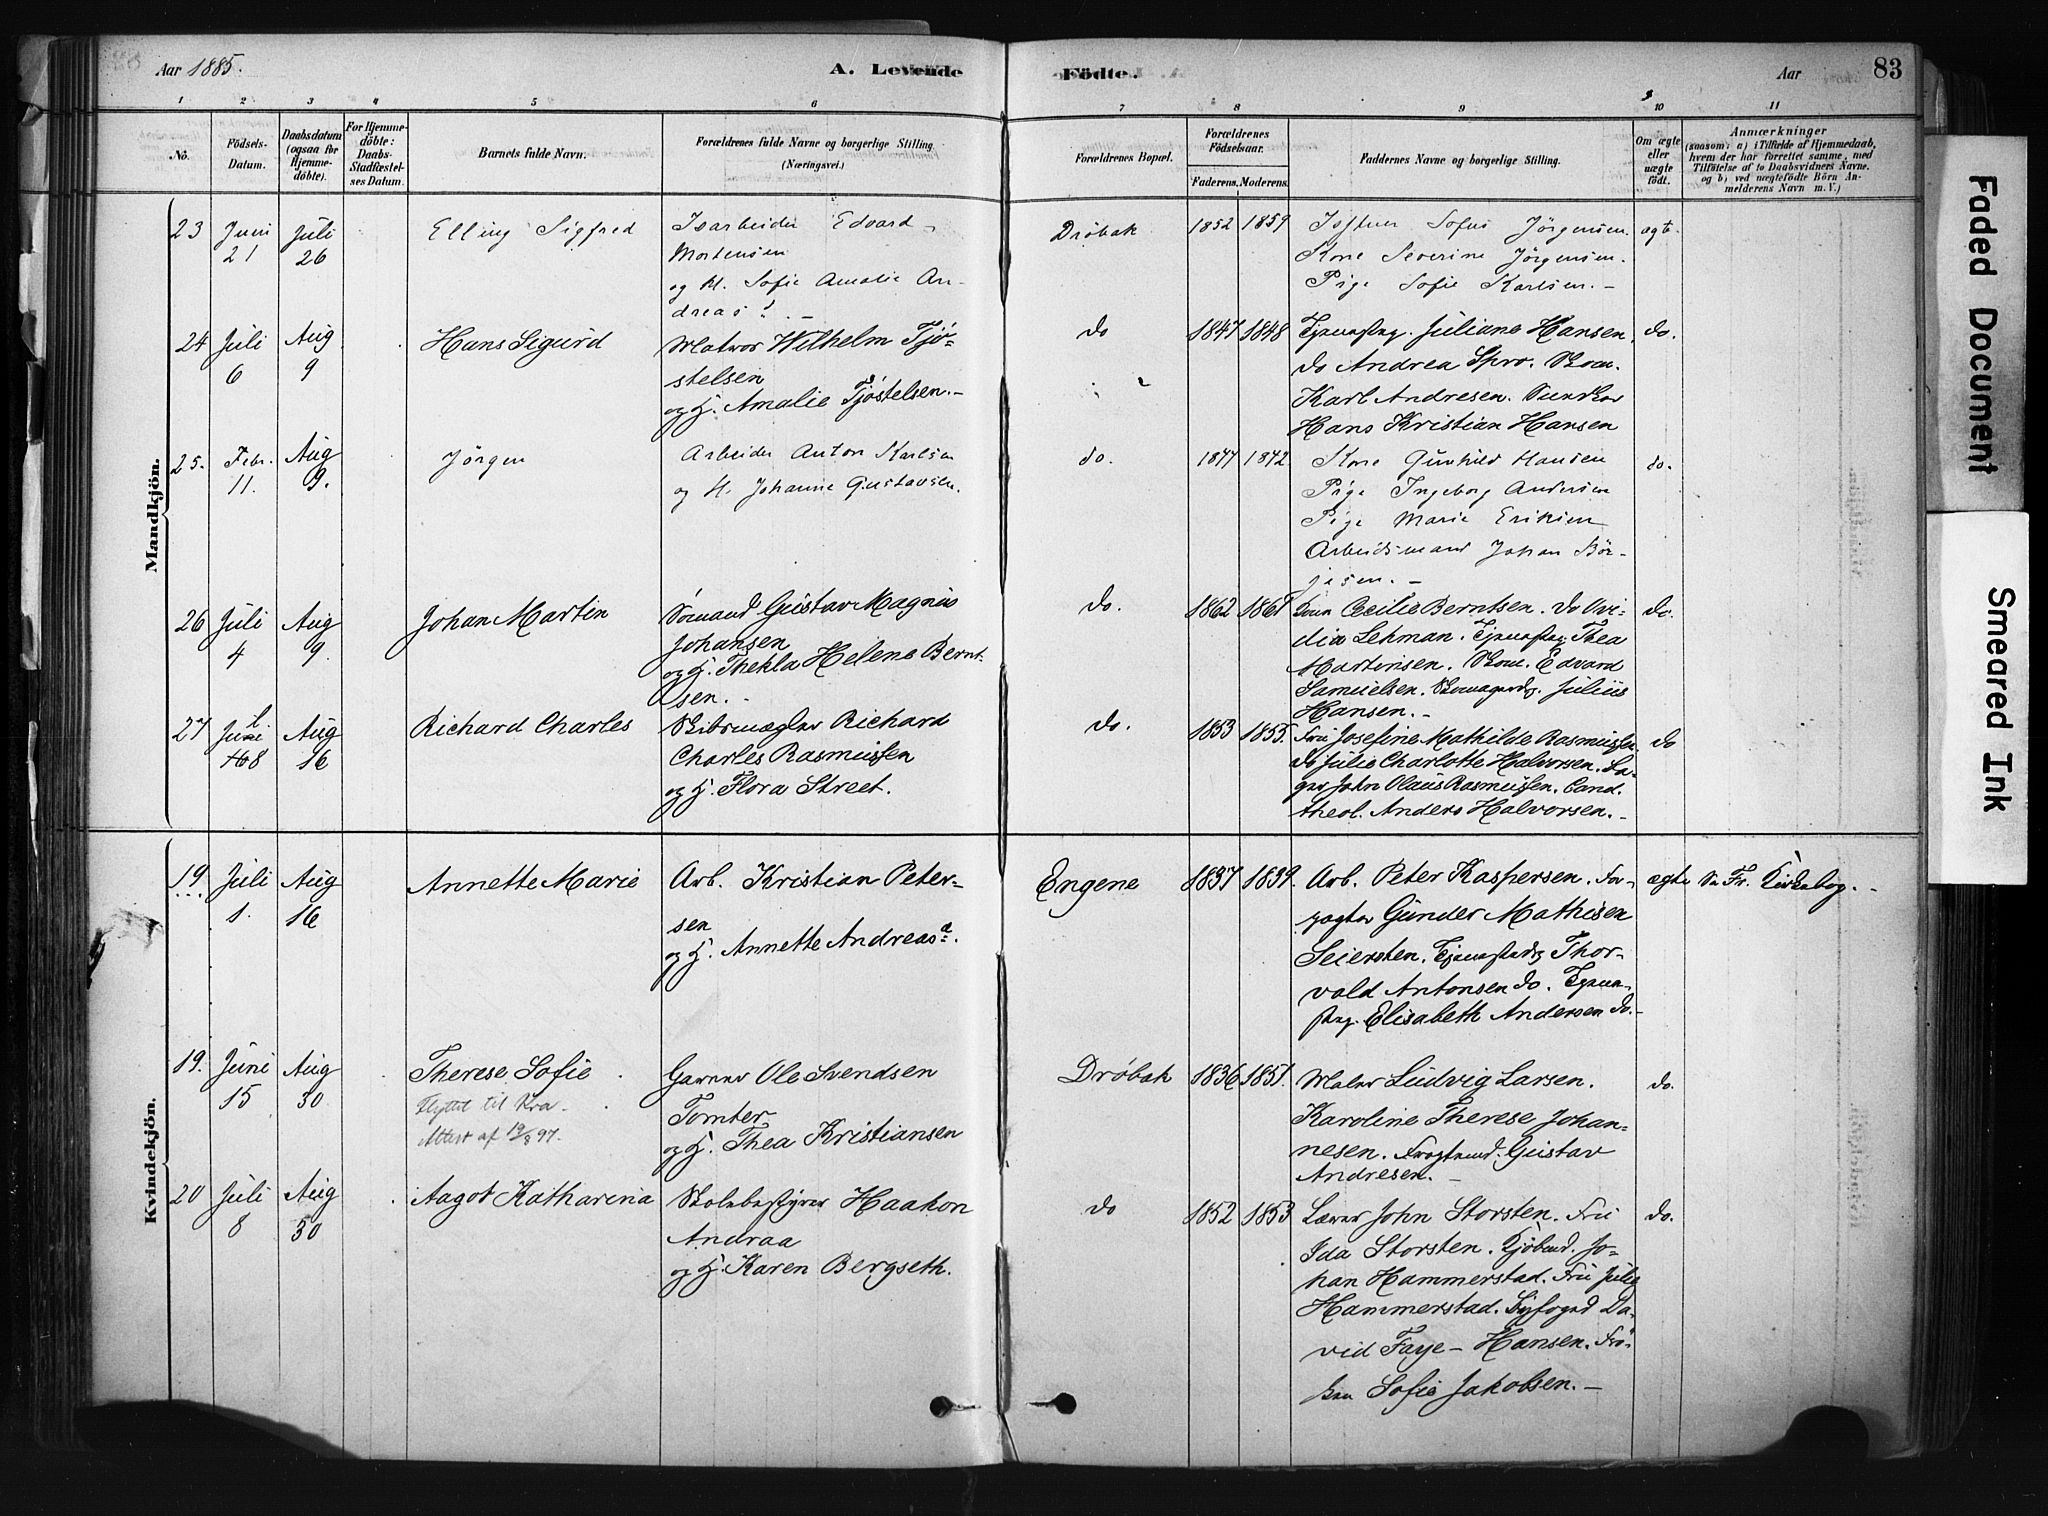 Aar 1885.
A. Levende Födte.
Aar
83
1 2 3 4 5 6 7 8 9 10 11
No.
Födsels-Datum.
Daabsdatum (ogsaa for Hjemmedöbte).
For Hjemmedöbte: Daabs-Stadfæstelses Datum.
Barnets fulde Navn.
Forældrenes fulde Navne og borgerlige Stilling (Næringsvei.)
Forældrenes Bopæl.
Forældrenes Födselsaar.
Faderens. Moderens.
Faddernes Navne og borgerlige Stilling.
Om ægte eller uægte født.
Anmærkninger
(saasom: a) i Tilfælde af Hjemmedaab,
hvem der har forrettet samme, med
Tilföielse af to Daabsvidners Navne.
og b) ved uægtefödte Börn An-
melderens Navn m. V.)
Mandkjön.
23 Juni 21 Juli 26 Elling Sigfred
Isarbeider Edvard
Mortensen
og H. Sofie Amalie An-
dreas
Dröbak 1852 1859
Sofus Jörgensen
Kone Severine Jörgensen.
Pige Sofie Karlsen. –
ægt.
24 Juli 6 Aug 9 Hans Sigurd
Matros Wilhelm Tjö-
stelsen
og H. Amalie Tjöstelsen. –
do 1847 1848
Tjenestpg. Juliane Hansen.
do Andrea Spro. Skom.
Karl Andresen.
Hans Kristian Hansen
do.
25. Febr. 11. Aug 9. Jörgen
Arbeider Anton Karlsen
og H. Johanne Gustavsen.
do. 1847 1842
Kone Gunhild Hansen
Pige Ingeborg Andersen
Pige Marie Eriksen
Arbeidsmand Johan Bör-
jesen. –
do.
26 Juli 4 Aug 9. Johan Martin
Sömand Gustav Magnus
Johansen
og H. Thekla Helene Bernt-
sen. –
do. 1862 1861
Kone Cecilie Berntsen. do Ovi-
dia Lehman. Tjenestpg. Thea
Martinsen. Skom. Edvard
Samuelsen. Julius
Hansen. –
do.
27 Juli 8 Aug 16 Richard Charles
Skibsmægler Richard
Charles Rasmussen
og H. Flora Street.
do. 1853 1855.
Fru Josefine Mathilde Rasmussen
do Julie Charlotte Halvorsen. La-
ger John Olaus Rasmussen. Cand.
theol. Anders Halvorsen. –
do
Kvindekjön.
19 Juli 1. Aug 16 Annette Marie
Arb. Kristian Peter-
sen
og H. Annette Andreasa.
Engene 1837 1839.
Arb. Peter Kaspersen. For-
pagter Gunder Mathisen
Seiersten. Tjenestedrg Thor-
vald Antonsen do. Tjene-
stpg. Elisabeth Andersen do. –
ægte Se Fr. Kirkebog. –
19. Juni 15 Aug 30 Therese Sofie
Flyttet til Kra.
Attest af 19/8 97.
Garver Ole Svendsen
Tomter
og H. Thea Kristiansen
Dröbak 1836 1851.
Maler Ludvig Larsen.
Karoline Therese Johan-
nesen. Gustav
Andresen. –
do.
20 Juli 8 Aug 30 Aagot Katharina
Skolebestyrer Haakon
Andraa
og H. Karen Bergseth.
do 1852 1853
Lærer John Storsten. Fru
Ida Storsten. Kjöbmd. Jo-
han Hammerstad. Fru Julie
Hammerstad. Byfoged Da-
vid Faye – Hansen. Frö-
ken Sofie Jakobsen. –
do.
Faded Document
Smeared Ink